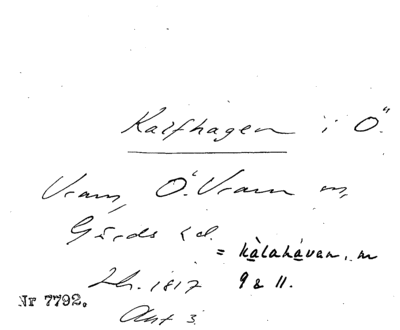 Kalfhagen i Ö.
Vram, Ö. Vram sn,
Gärds hd.
= kàlahávan, m
Lh. 1817 9 & 11.
Nr 7792. Akt 3